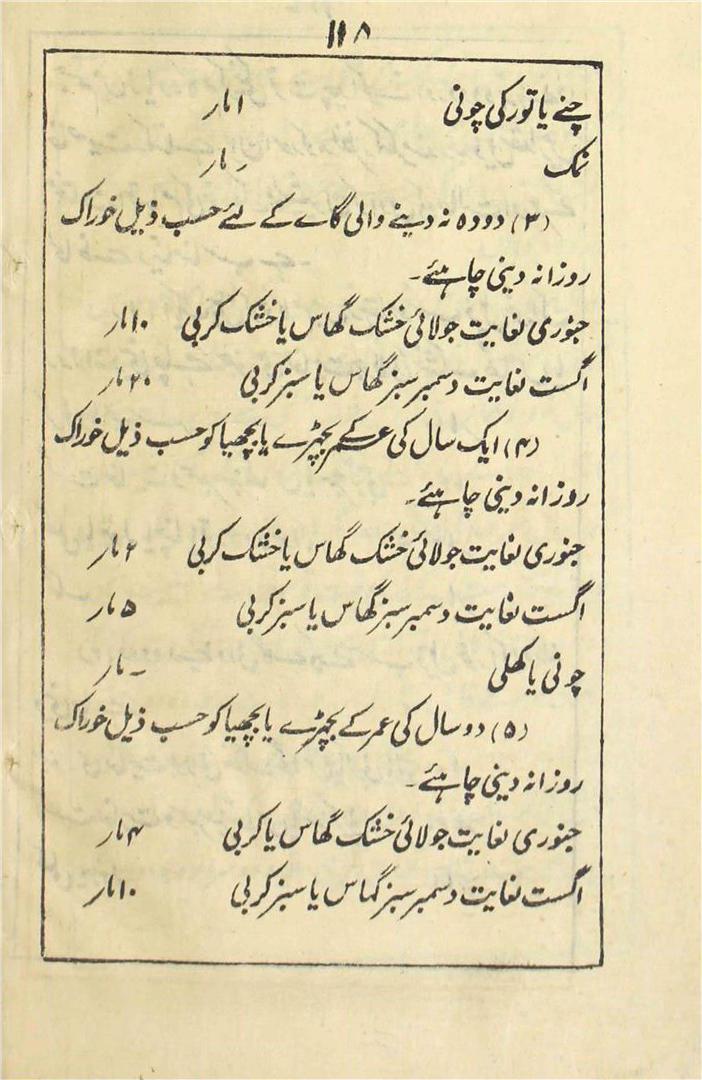 ۱۱۸
چنے یا تور کی چونی ۱ مار
نمک ۔ مار
(۳) دودہ نہ دینے والی گاے کے لئے حسب ذیل خوراک
روزانہ دینی چاہئے۔
جنوری لغایت جولائی خشک گھاس یا خشک کربی ۱۰ مار
اگست لغایت دسمبر سبز گھاس یا سبز کربی ۲۰ مار
(۴) ایک سال کی عمر کے بچھڑے یا بچھیا کو حسب ذیل خوراک
روزانہ دینی چاہئے۔
جنوری لغایت جولائی خشک گھاس یا خشک کربی ۲ مار
اگست لغایت دسمبر سبز گھاس یا سبز کربی ۵ مار
چونی یا کھلی ۔ مار
(۵) دو سال کی عمر کے بچھڑے یا بچھیا کو حسب ذیل خوراک
روزانہ دینی چاہئے۔
جنوری لغایت جولائی خشک گھاس یا کربی ۴ مار
اگست لغایت دسمبر سبز گہاس یا سبز کربی ۱۰ مار